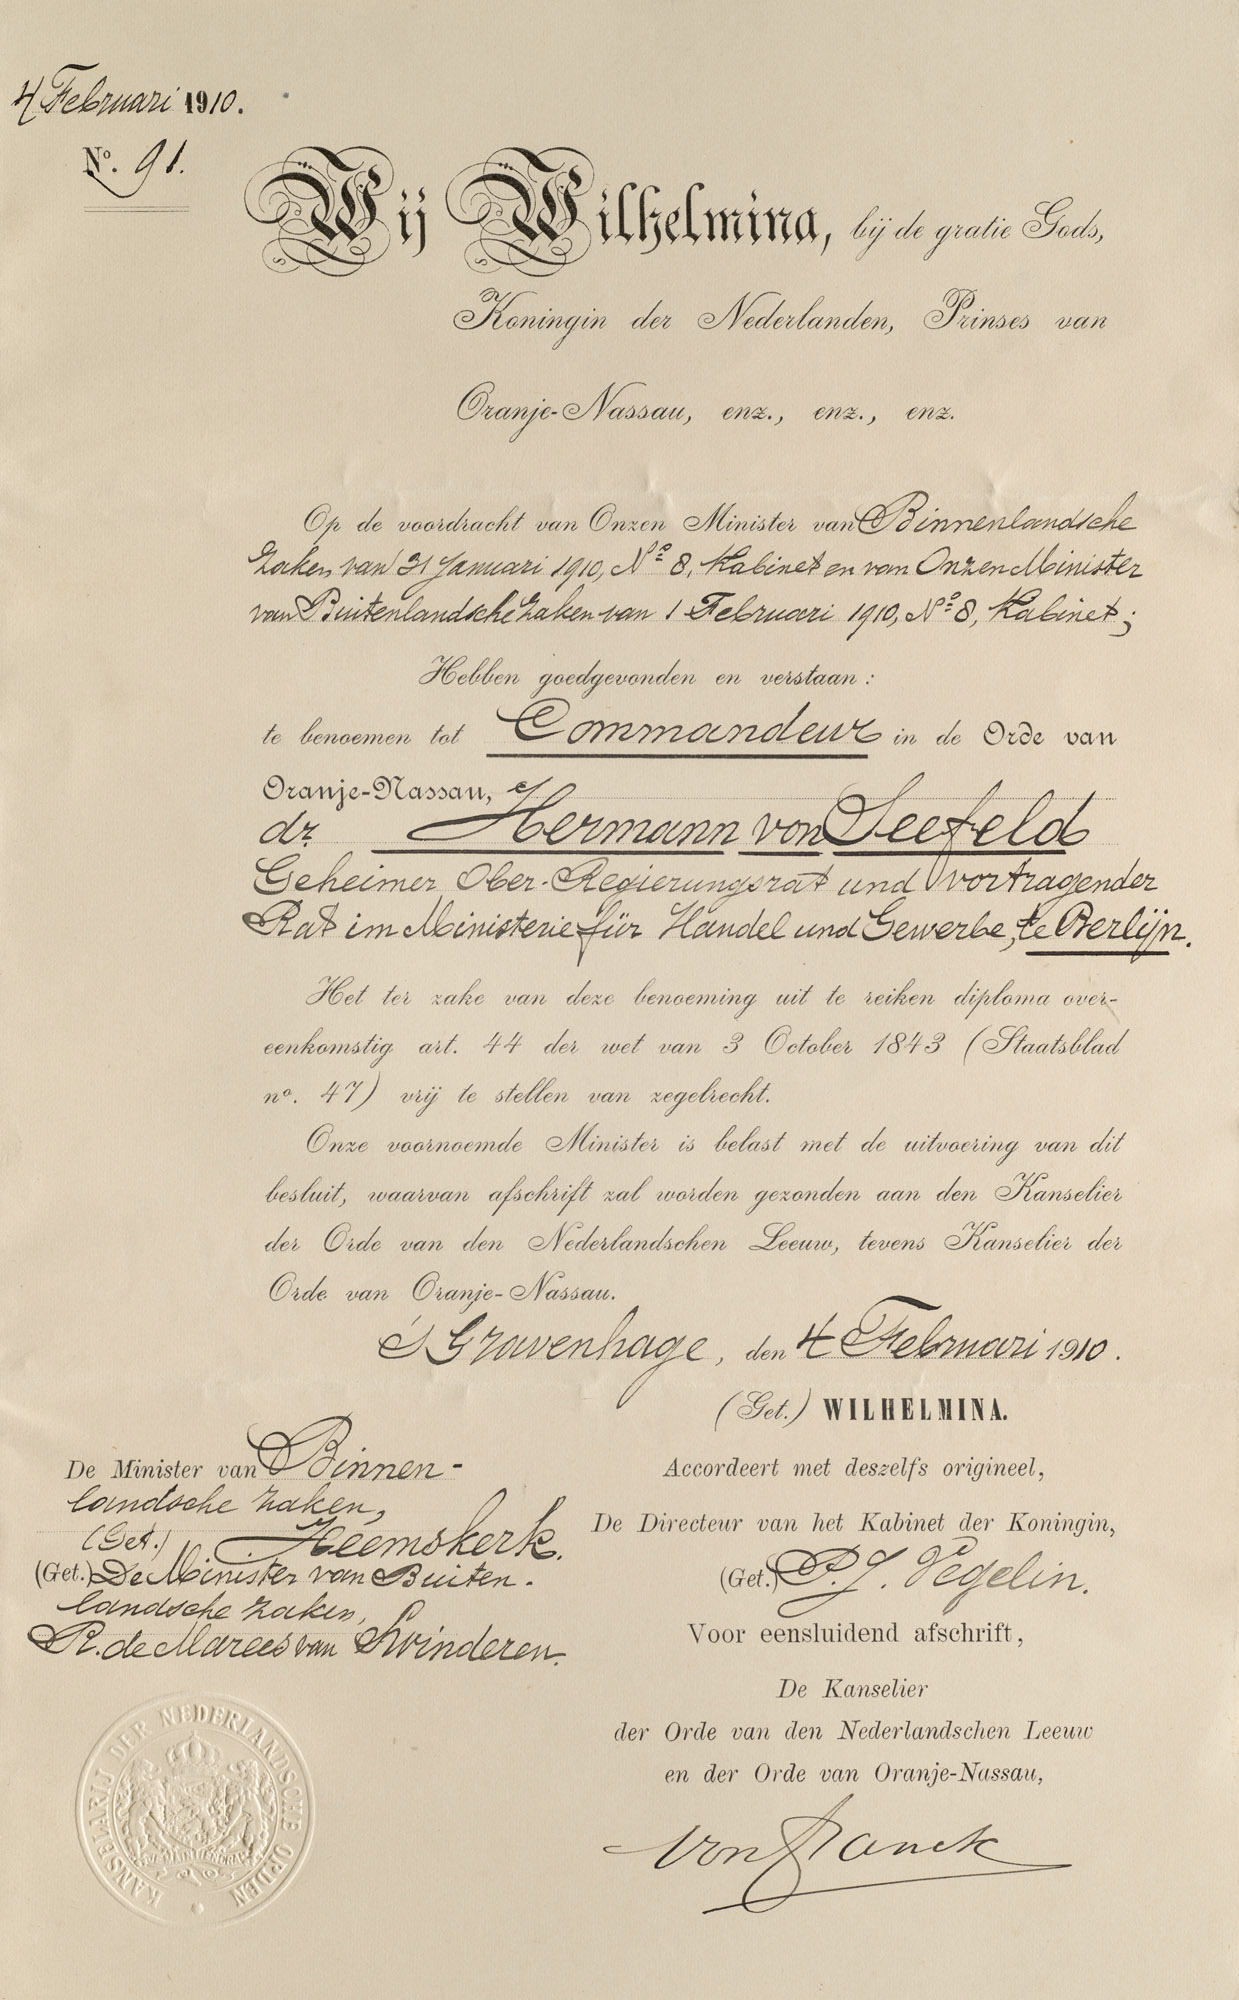 4 Februari 1910.
No. 91.
Wij Wilhelmina, bij de gratie Gods,
Koningin der Nederlanden, Prinses van
Oranje-Nassau, enz., enz., enz.
Op de voordracht van Onzen Minister van Binnenlandsche
Zaken van 31 Januari 1910, No 8, Kabinet en van Onzen Minister
van Buitenlandsche Zaken van 1 Februari 1910, No 8, Kabinet;
Hebben goedgevonden en verstaan:
te benoemen tot Commandeur in de Orde van
Oranje-Nassau,
dr. Hermann von Seefeld
Geheimer Ober-Regierungsrat und vortragender
Rat im Ministerie für Handel und Gewerbe, te Berlijn.
Het ter zake van deze benoeming uit te reiken diploma over-
eenkomstig art. 44 der wet van 3 October 1843 (Staatsblad
no. 47) vrij te stellen van zegelrecht.
Onze voornoemde Minister is belast met de uitvoering van dit
besluit, waarvan afschrift zal worden gezonden aan den Kanselier
der Orde van den Nederlandschen Leeuw, tevens Kanselier der
Orde van Oranje-Nassau.
's Gravenhage, den 4 Februari 1910.
(Get.) WILHELMINA.
De Minister van Binnen-
landsche Zaken,
(Get.) Heemskerk.
(Get.) De Minister van Buiten-
landsche Zaken,
R. de Marees van Swinderen.
Accordeert met deszelfs origineel,
De Directeur van het Kabinet der Koningin,
(Get.) P. J. Vegelin.
Voor eensluidend afschrift,
De Kanselier
der Orde van den Nederlandschen Leeuw
en der Orde van Oranje-Nassau,
KANSELARIJ DER NEDERLANDSCHE ORDEN
JE MAINTIENDRAI